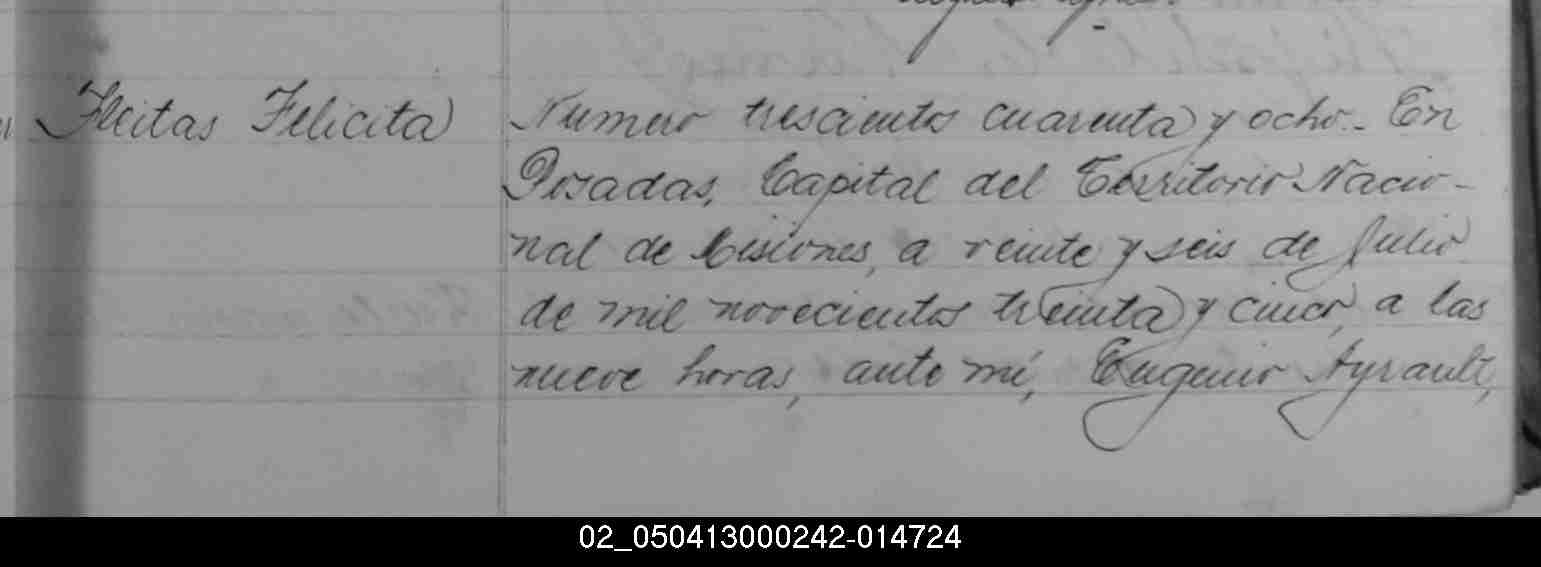 Flcitas Felicita
Numero trescientos cuarenta y ocho.- En
Posadas, Capital del Territorio Nacio-
nal de Misiones, a veinte y seis de Julio
de mil novecientos treinta y cinco, a las
nueve horas, ante mí, Eugenio Ayrault,
02_050413000242-014724